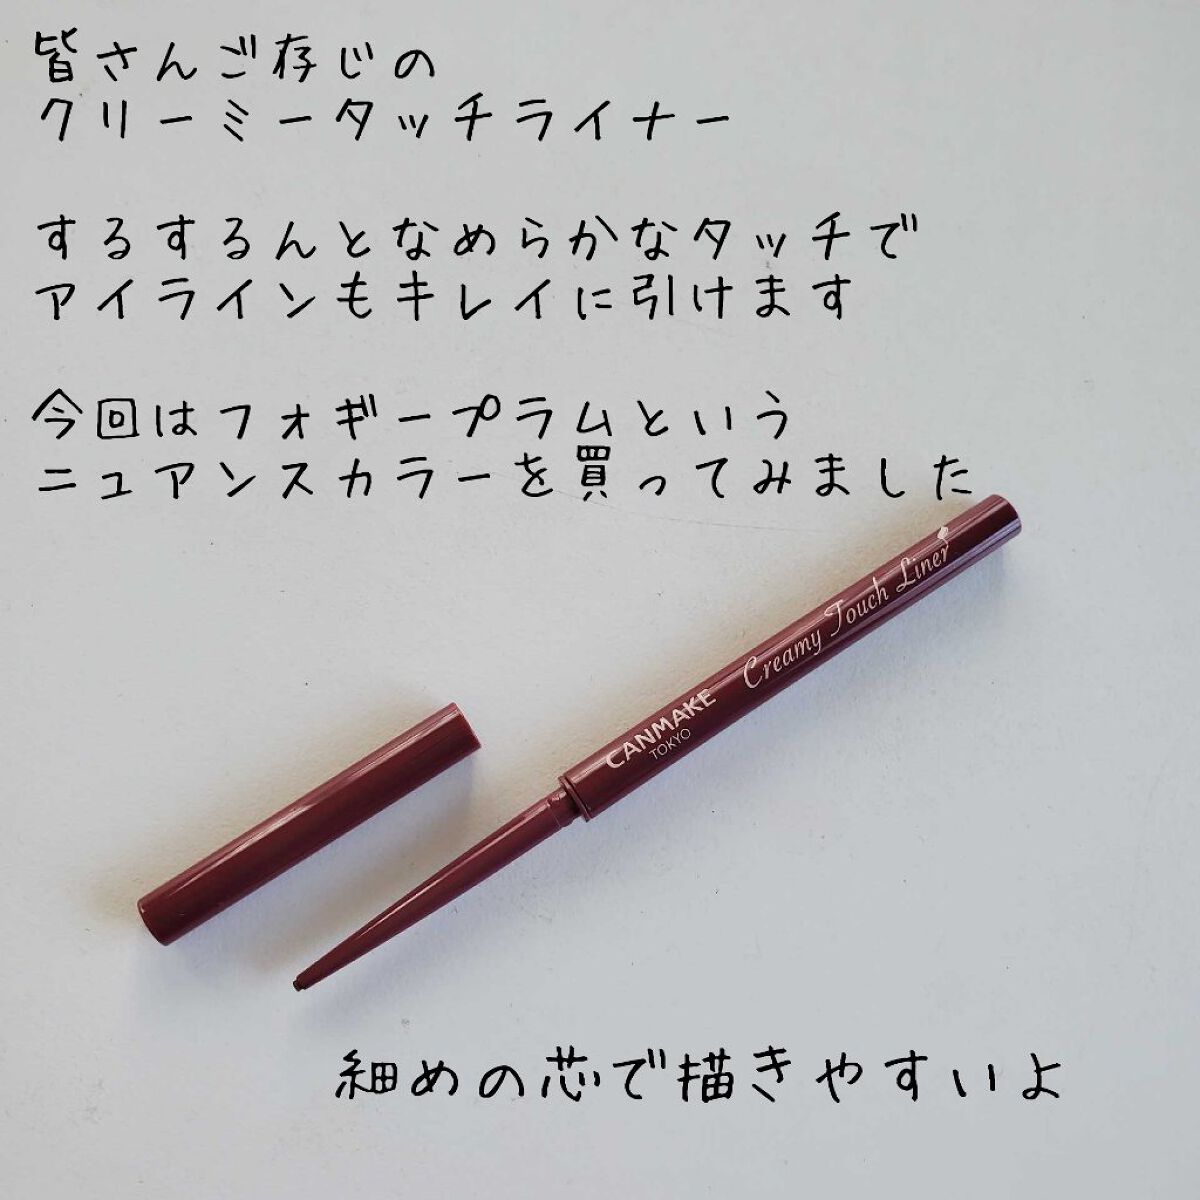 皆さんご存じの
クリーミータッチライナー
するするんとなめらかなタッチで
アイラインもキレイに引けます
今回はフォギープラムという
ニュアンスカラーを買ってみました
CANMAKE
TOKYO
Creamy Touch Liner
細めの芯で描きやすいよ